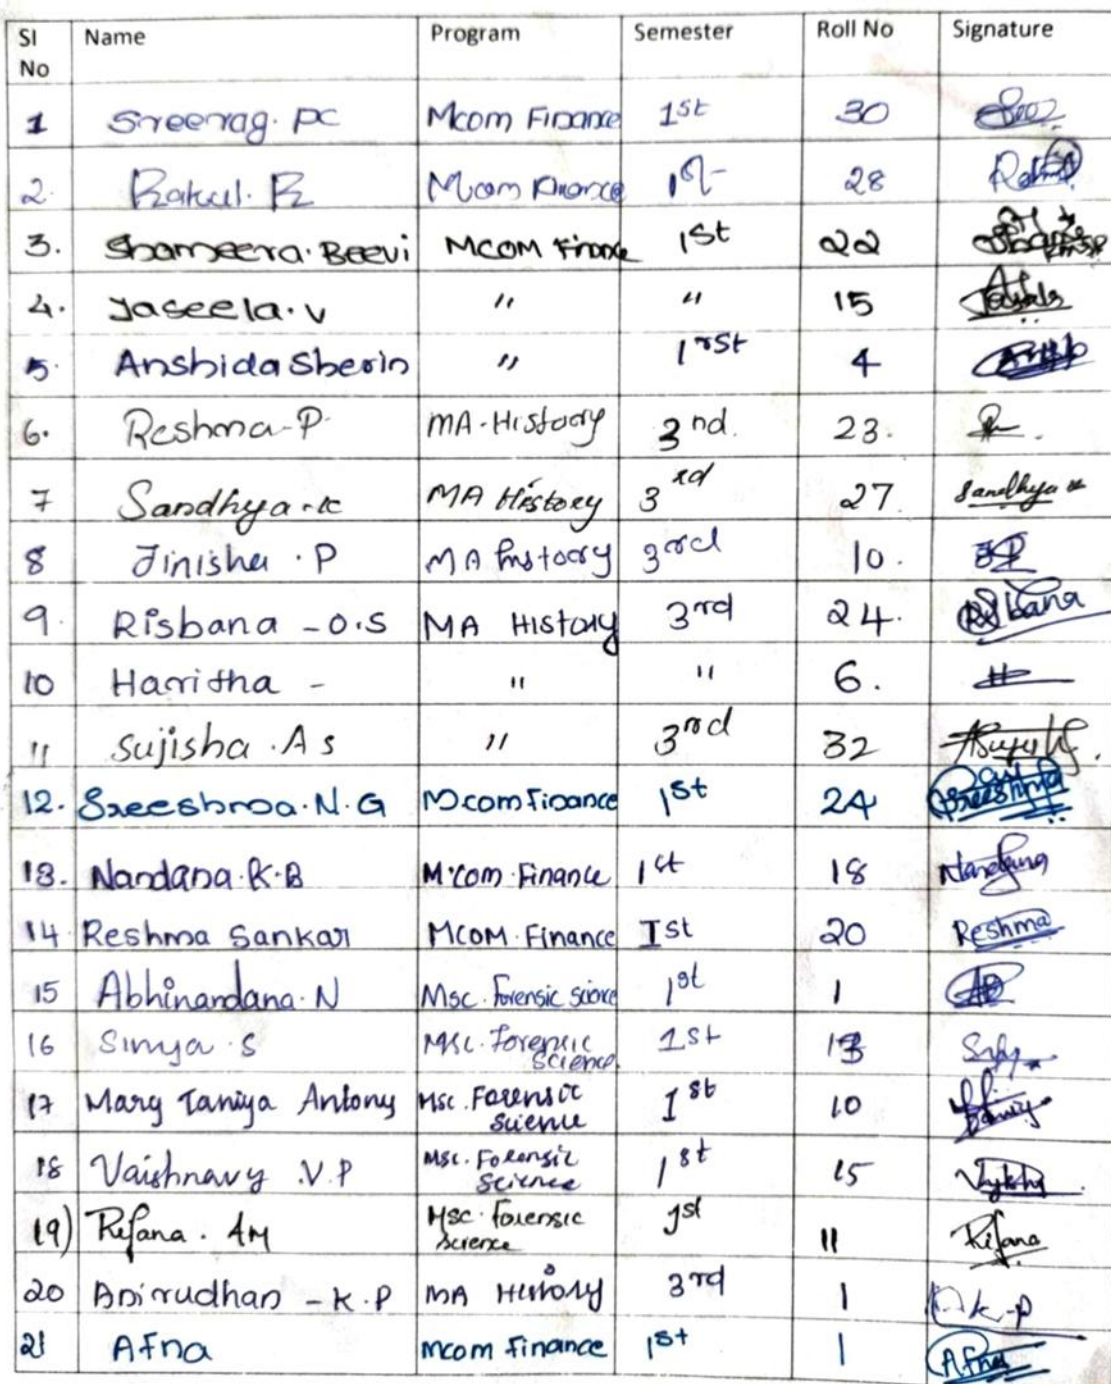 Sl No Name Program Semester Roll No Signature
1 Sreerag. PC Mcom Finance 1st 30
2. Rahul. R Mcom Finance 1st 28
3. Shameera. Beevi MCOM Finance 1st 22
4. Jaseela. V " " 15
5. Anshida Sherin " 1rst 4
6. Reshma-P. MA-History 3nd. 23.
7 Sandhya-K MA History 3rd 27. Sandhya K
8 Jinisha . P MA History 3rd 10. JP
9. Risbana - O.S MA History 3rd 24. Risbana
10 Haritha - " " 6. H
11 Sujisha . A s " 3rd 32
12. Sreeshma. N. G Mcom Finance 1st 24 Sreeshma
13. Nandana. K. B M.com. Finance 1st 18 Nandana
14 Reshma Sankar MCOM. Finance Ist 20 Reshma
15 Abhinandana. N Msc. Forensic science 1st 1
16 Simya. S Msc. Forensic Science. 1st 13
17 Mary Taniya Antony Msc. Forensic Science 1st 10
18 Vaishnavy .V.P Msc. Forensic Science 1st 15
19) Rifana. AM Msc. Forensic Science 1st 11 Rifana
20 Anirudhan - K.P MA History 3rd 1 A k-p
21 Afna mcom finance 1st 1 Afna